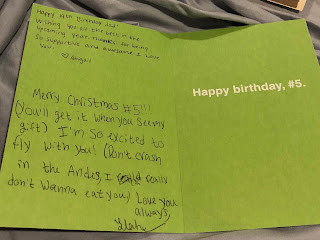 Happy Birthday dad!
Wishing you all the best in the
upcoming year. Thanks for being
so supportive and awesome I love
you.
♡ Abigail
Merry Christmas #5!!!
(You'll get it when you see my
gift) I'm so excited to
fly with you! (Don't crash
in the Andes, I really
don't wanna eat you) Love you
always,
Happy birthday, #5.